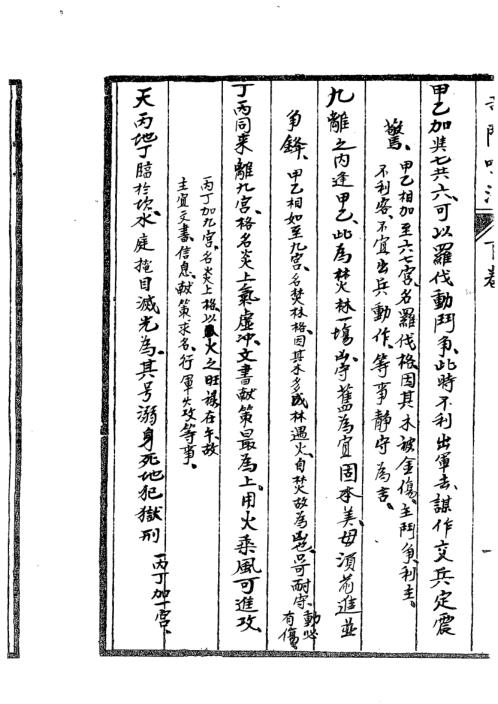 甲乙加奘七共六、可以羅伐動鬥争、此時不利出軍去、謀作交兵定震
驚、甲乙相加至六七宮、名羅伐格、因其木被金傷、主鬥争、利主、
不利客、不宜出兵動作、等事静守為吉、
九離之内逢甲乙、此為焚林一塲凶、守舊為宜固本美、毋須前進並
争鋒、甲乙相如至九宮、名焚林格、因其木多成林遇火自焚故為凶也、只可耐守、動必
有傷、
丁丙同来離九宮、格名炎上氣虚冲、文書献策最為上、用火乘風可進攻、
丙丁加九宮、名炎上格、以火之旺禄在午、故
主宜文書、信息、献策求名、行軍火攻等事、
天丙地丁臨於坎、水庭掩目滅光為、其号溺身死地犯獄刑
丙丁加一宮、
下卷
一